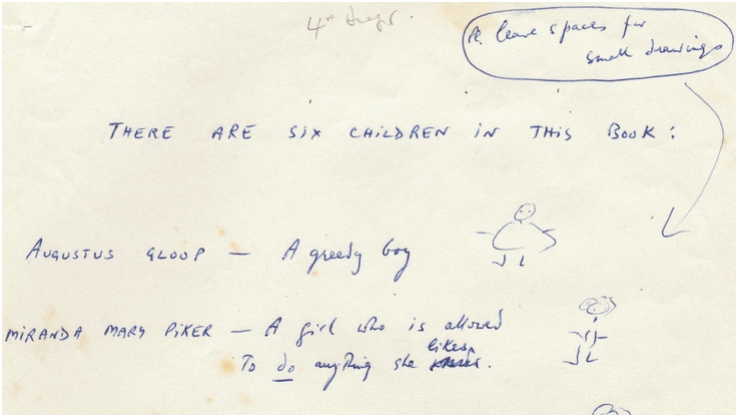 4
Pl. leave spaces for
small drawings
THERE ARE SIX CHILDREN IN THIS BOOK:
AUGUSTUS GLOOP — A greedy boy
MIRANDA MARY PIKER — A girl who is allowed
To do anything she likes.